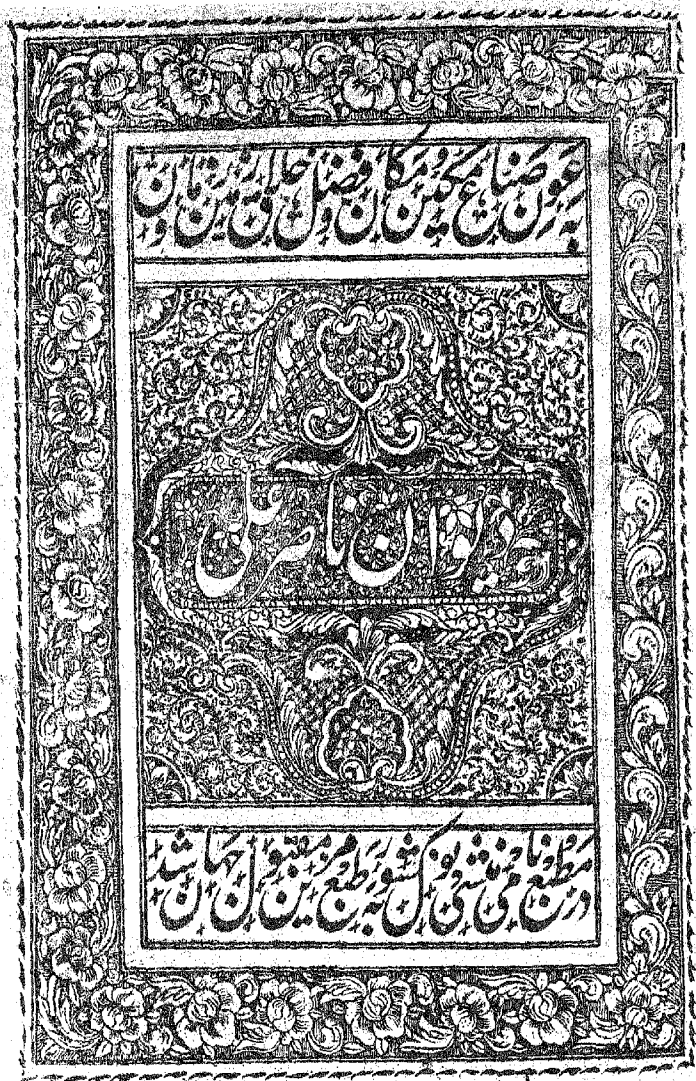 به عون صناع مکین و مکان و فضل خلاق زمین و زمان
دیوان ناصر علی
در مطبع نامی منشی نولکشور به طبع مزین مقبول جهان شد